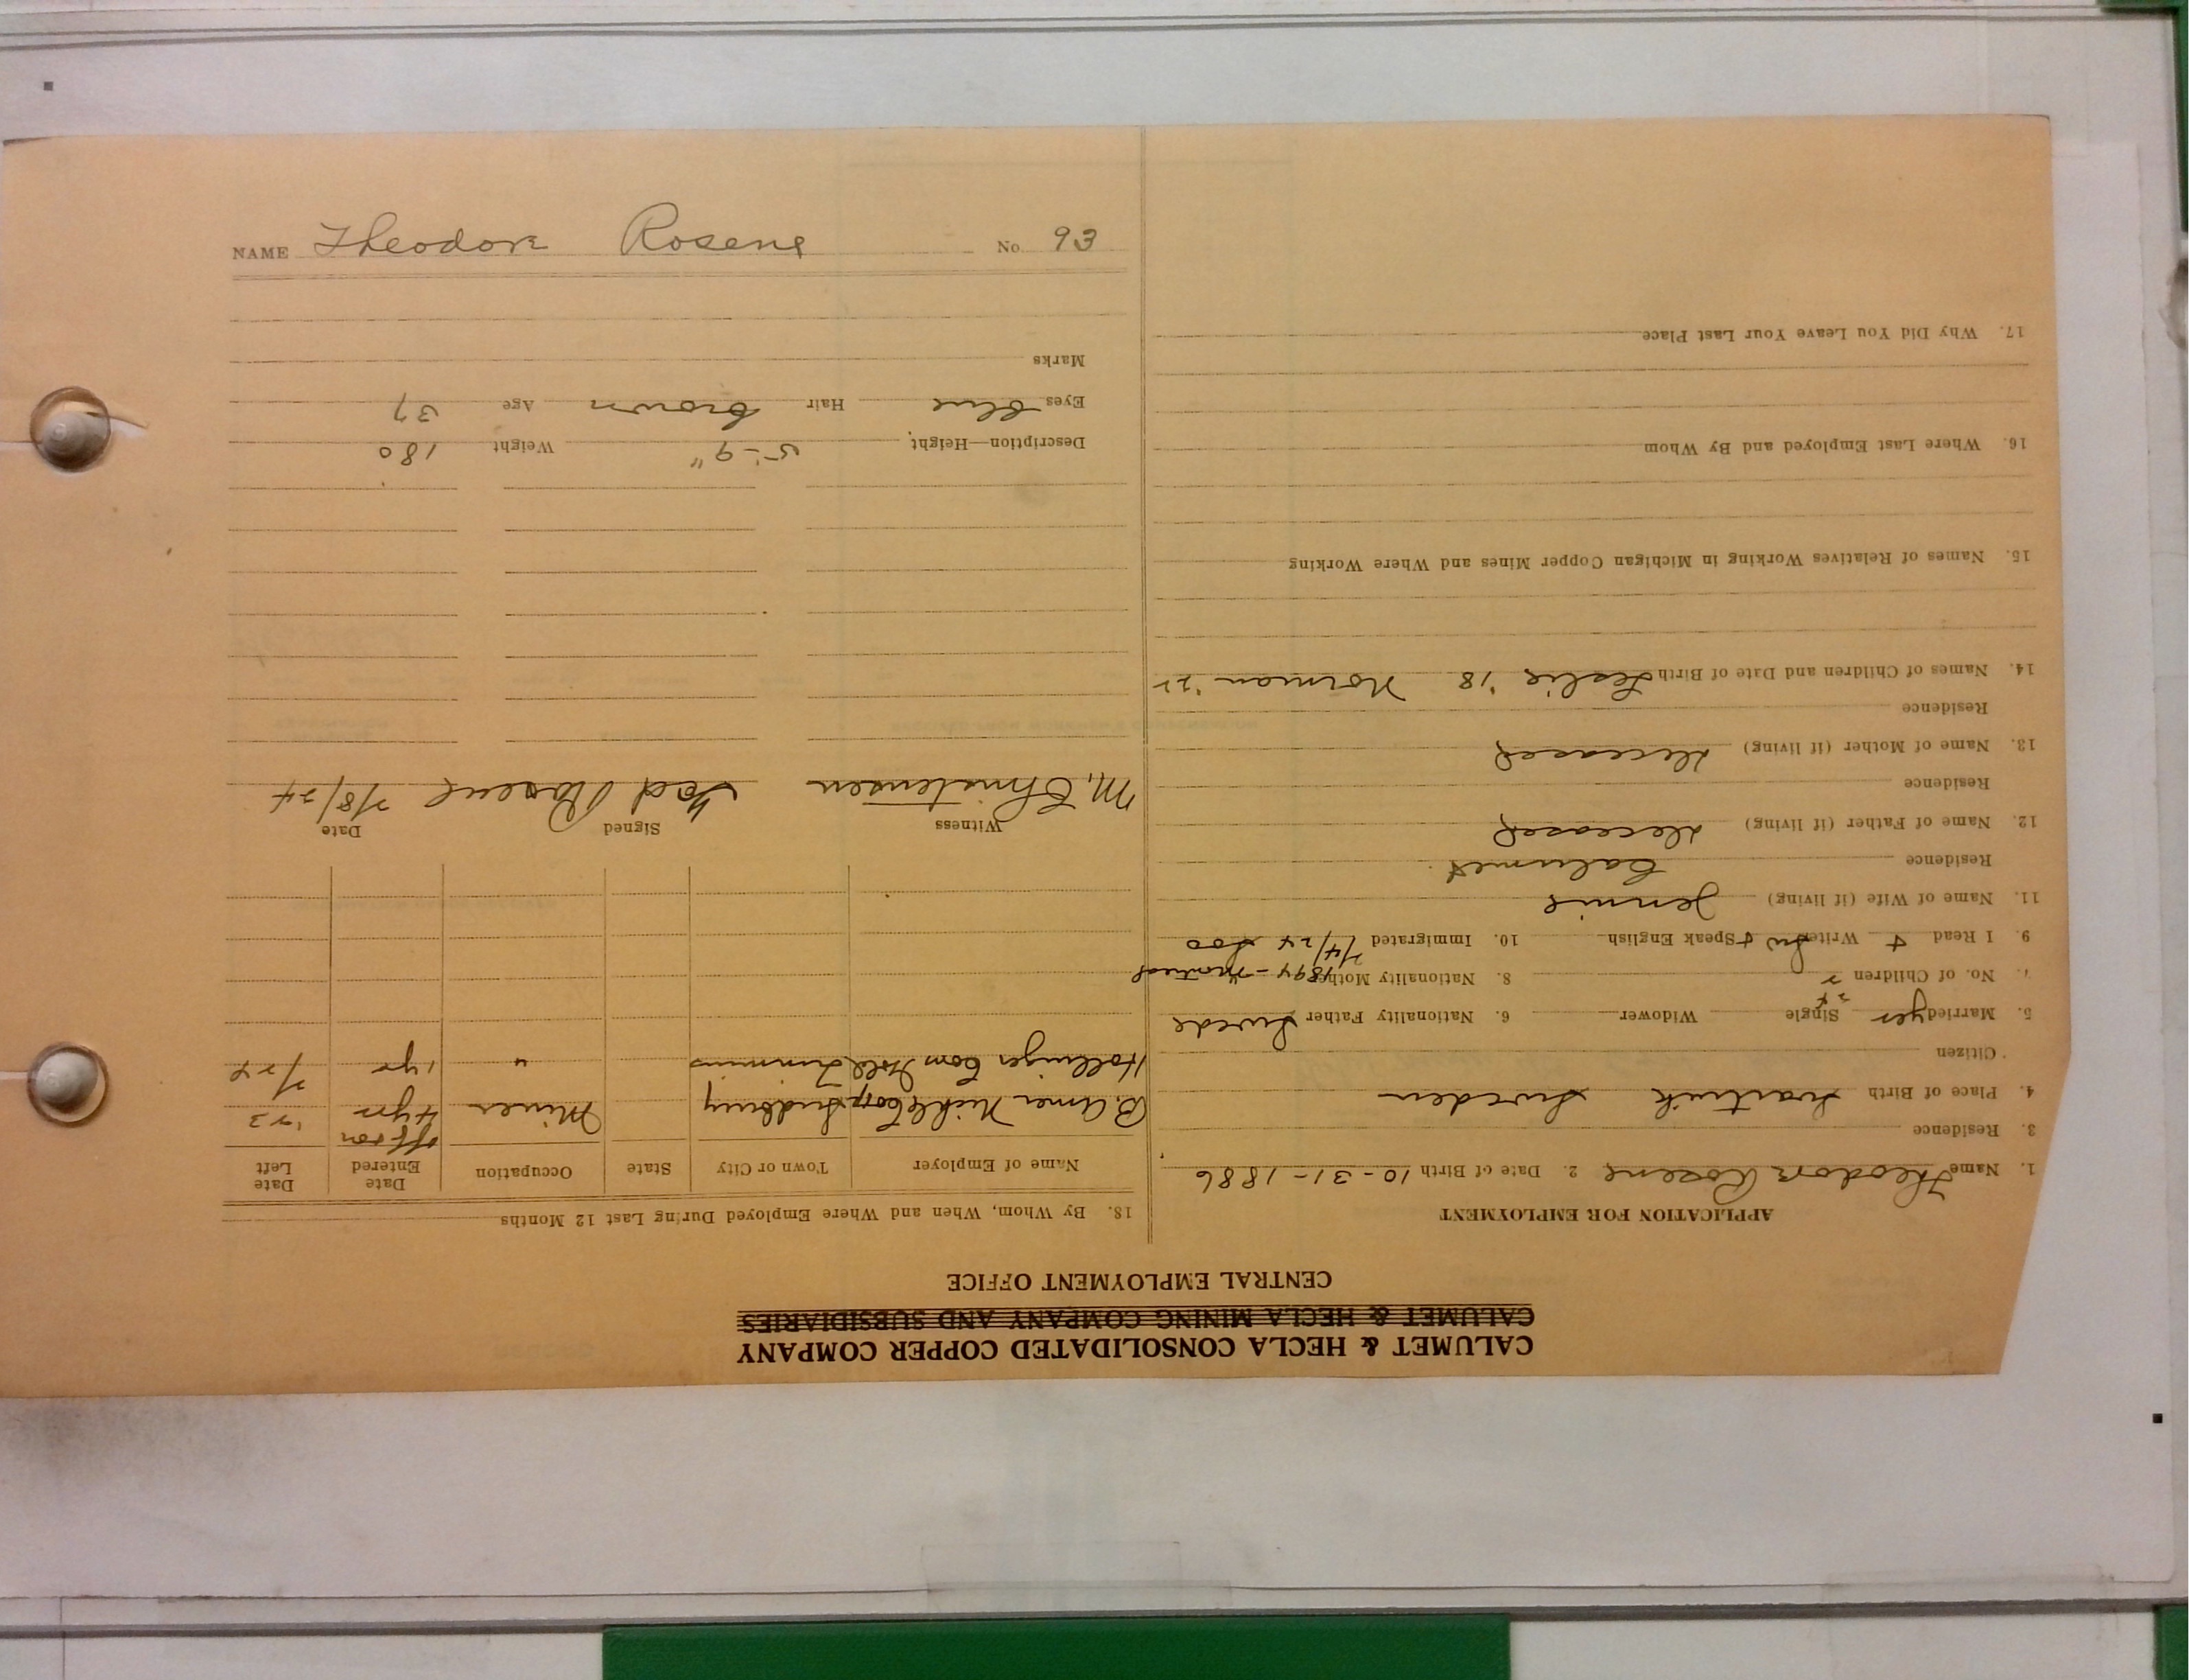 CALUMET & HECLA CONSOLIDATED COPPER COMPANY
CALUMET & HECLA MINING COMPANY AND SUBSIDIARIES
CENTRAL EMPLOYMENT OFFICE
APPLICATION FOR EMPLOYMENT
1. Name Theodore Rosene 2. Date of Birth 10-31-1886
3. Residence
4. Place of Birth Sweden
Citizen
5. Married yes Single Widower 6. Nationality Father Swede
7. No. of Children 2 8. Nationality Mother " 1894 - Montreal
9. I Read + Write Sw Speak English + 10. Immigrated 7/4/24 Soo
11. Name of Wife (if living) Jennie
Residence Calumet
12. Name of Father (if living) deceased
Residence
13. Name of Mother (if living) deceased
Residence
14. Names of Children and Date of Birth Leslie '18 Norman '22
15. Names of Relatives Working in Michigan Copper Mines and Where Working
16. Where Last Employed and By Whom
17. Why Did You Leave Your Last Place
18. By Whom, When and Where Employed During Last 12 Months
Name of Employer Town or City State Occupation Date Entered Date Left
B. Amer Nickel Corp Sudbury Miner off & on 4 yrs '23
Hollinger Con Gold Timmins " 1 yr 7/24
Witness Signed Date
M. Christensen Ted Rosene 7/8/24
Description—Height, 5'-9" Weight 180
Eyes blue Hair brown Age 37
Marks
NAME Theodore Rosene No. 93